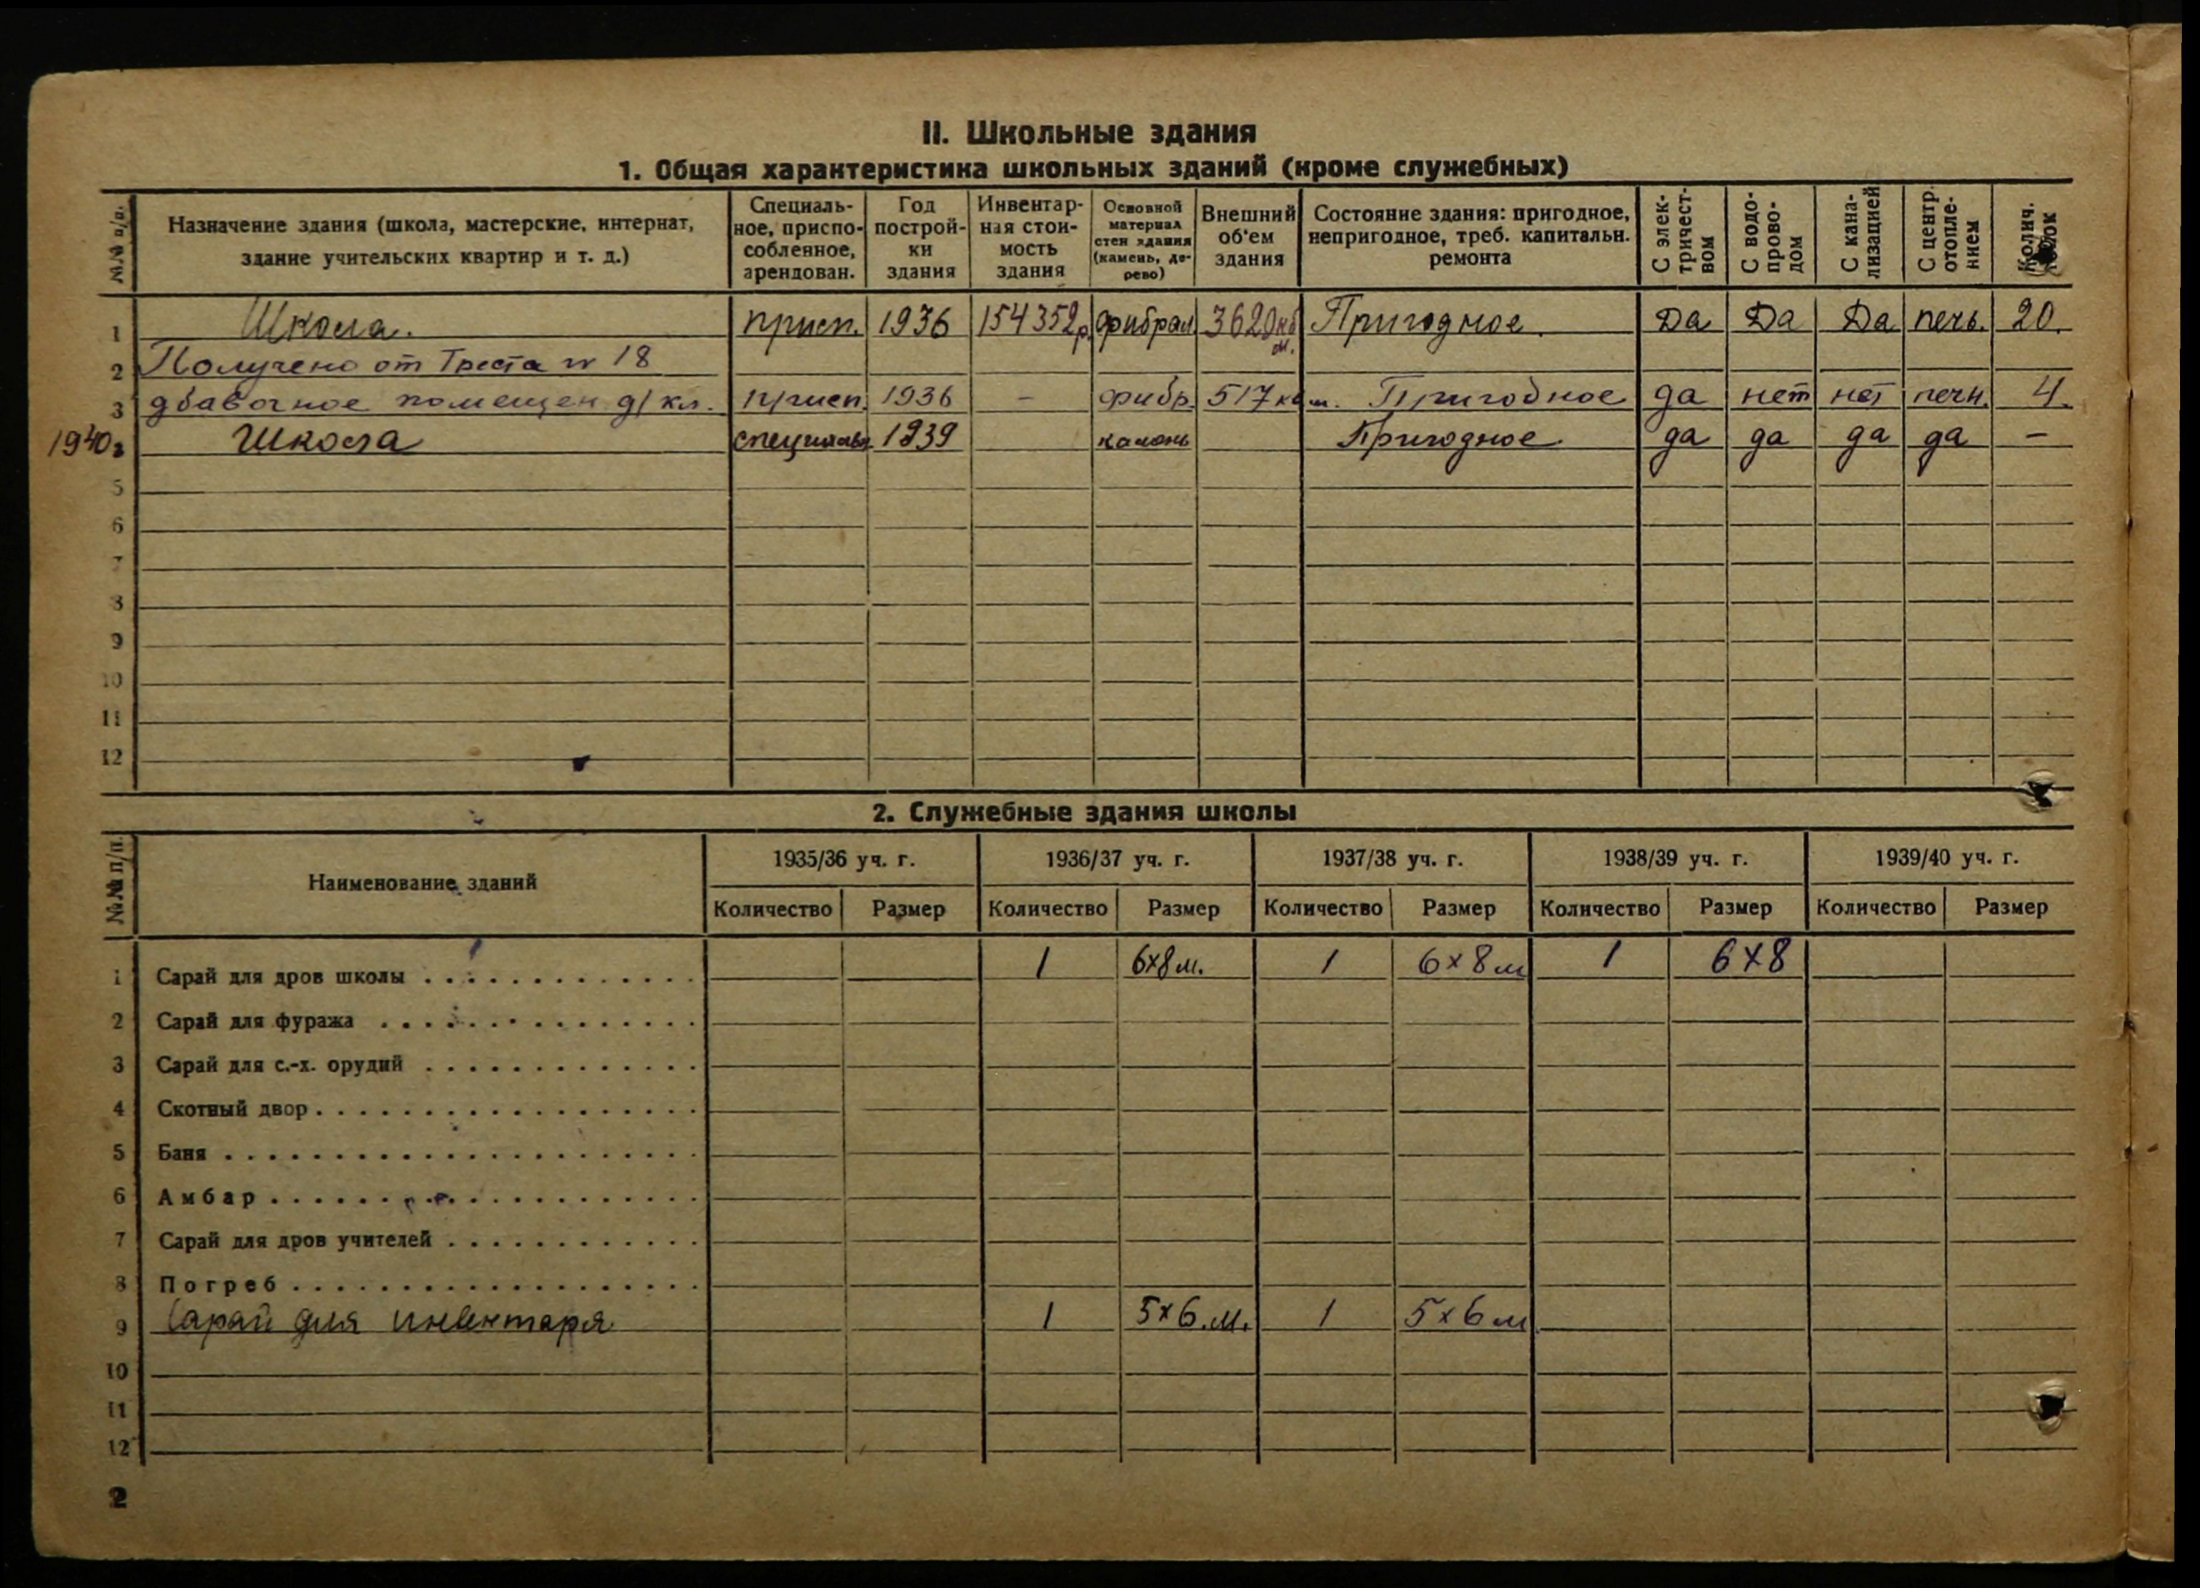 II. Школьные здания
1. Общая характеристика школьных зданий (кроме служебных)
№№ п/п. Назначение здания (школа, мастерские, интернат, здание учительских квартир и т. д.) Специальное, приспособленное, арендован. Год постройки здания Инвентарная стоимость здания Основной материал стен здания (камень, дерево) Внешний об'ем здания Состояние здания: пригодное, непригодное, треб. капитальн. ремонта С электричеством С водопроводом С канализацией С центр. отоплением Колич.
1 Школа. присп. 1936 154352р. фиброл 3620 кб м. Пригодное. Да Да Да печь. 20.
2 Получено от Треста № 18
3 дбавочное помещен. д/кл. присп. 1936 – фибр. 517 кб м. Пригодное да нет нет печн. 4.
1940 Школа специальн 1939 камень Пригодное да да да да –
5
6
7
8
9
10
11
12
2. Служебные здания школы
№№ п/п. Наименование зданий 1935/36 уч. г. 1936/37 уч. г. 1937/38 уч. г. 1938/39 уч. г. 1939/40 уч. г.
Количество Размер Количество Размер Количество Размер Количество Размер Количество Размер
1 Сарай для дров школы 1 6х8 м. 1 6х8 м 1 6х8
2 Сарай для фуража
3 Сарай для с.-х. орудий
4 Скотный двор
5 Баня
6 Амбар
7 Сарай для дров учителей
8 Погреб
9 Сарай для инвентаря 1 5х6.м. 1 5х6 м
10
11
12
2